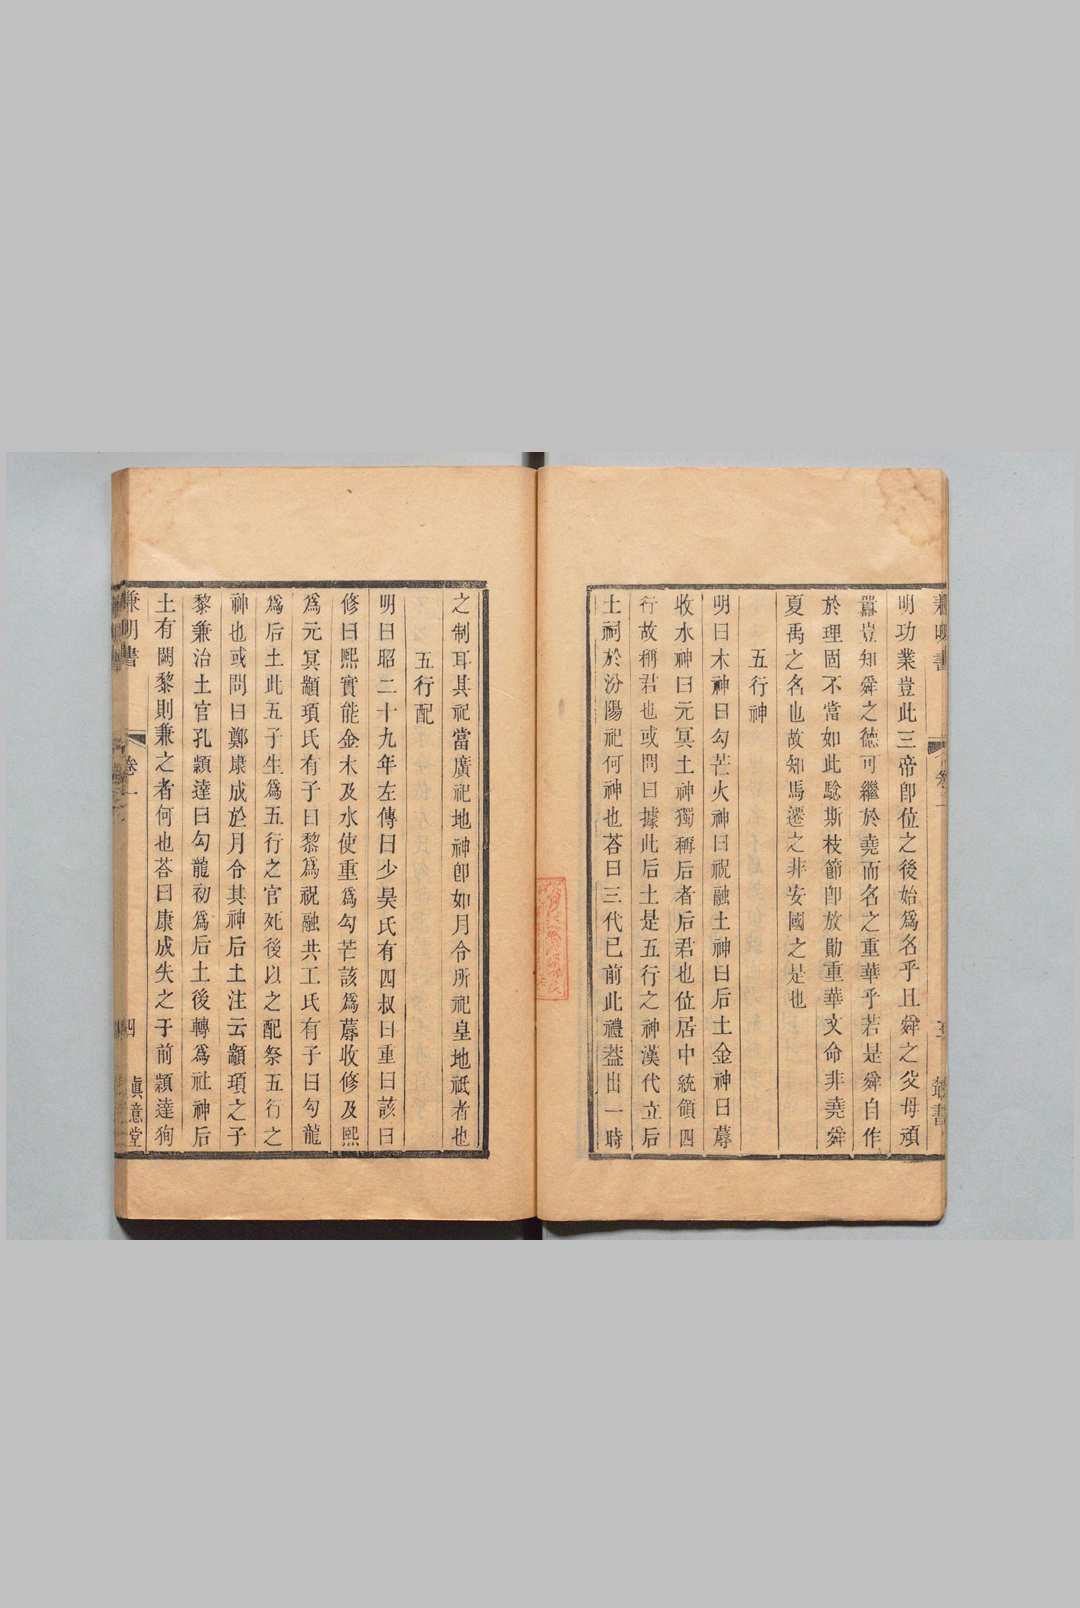 兼明書
卷一
叢書
明功業豈此三帝卽位之後始爲名乎且舜之父母頑
嚚豈知舜之德可繼於堯而名之重華乎若是舜自作
於理固不當如此驗斯枝節卽放勛重華文命非堯舜
夏禹之名也故知馬遷之非安國之是也
五行神
明曰木神曰勾芒火神曰祝融土神曰后土金神曰蓐
收水神曰元冥土神獨稱后者后君也位居中統領四
行故稱君也或問曰據此后土是五行之神漢代立后
土祠於汾陽祀何神也荅曰三代已前此禮葢出一時
之制耳其祀當廣祀地神卽如月令所祀皇地祇者也
五行配
明曰昭二十九年左傳曰少昊氏有四叔曰重曰該曰
修曰熙實能金木及水使重爲勾芒該爲蓐收修及熙
爲元冥顓頊氏有子曰黎爲祝融共工氏有子曰勾龍
爲后土此五子生爲五行之官死後以之配祭五行之
神也或問曰鄭康成於月令其神后土注云顓頊之子
黎兼治土官孔穎達曰勾龍初爲后土後轉爲社神后
土有闕黎則兼之者何也荅曰康成失之于前穎達狥
兼明書
卷一
四
眞意堂